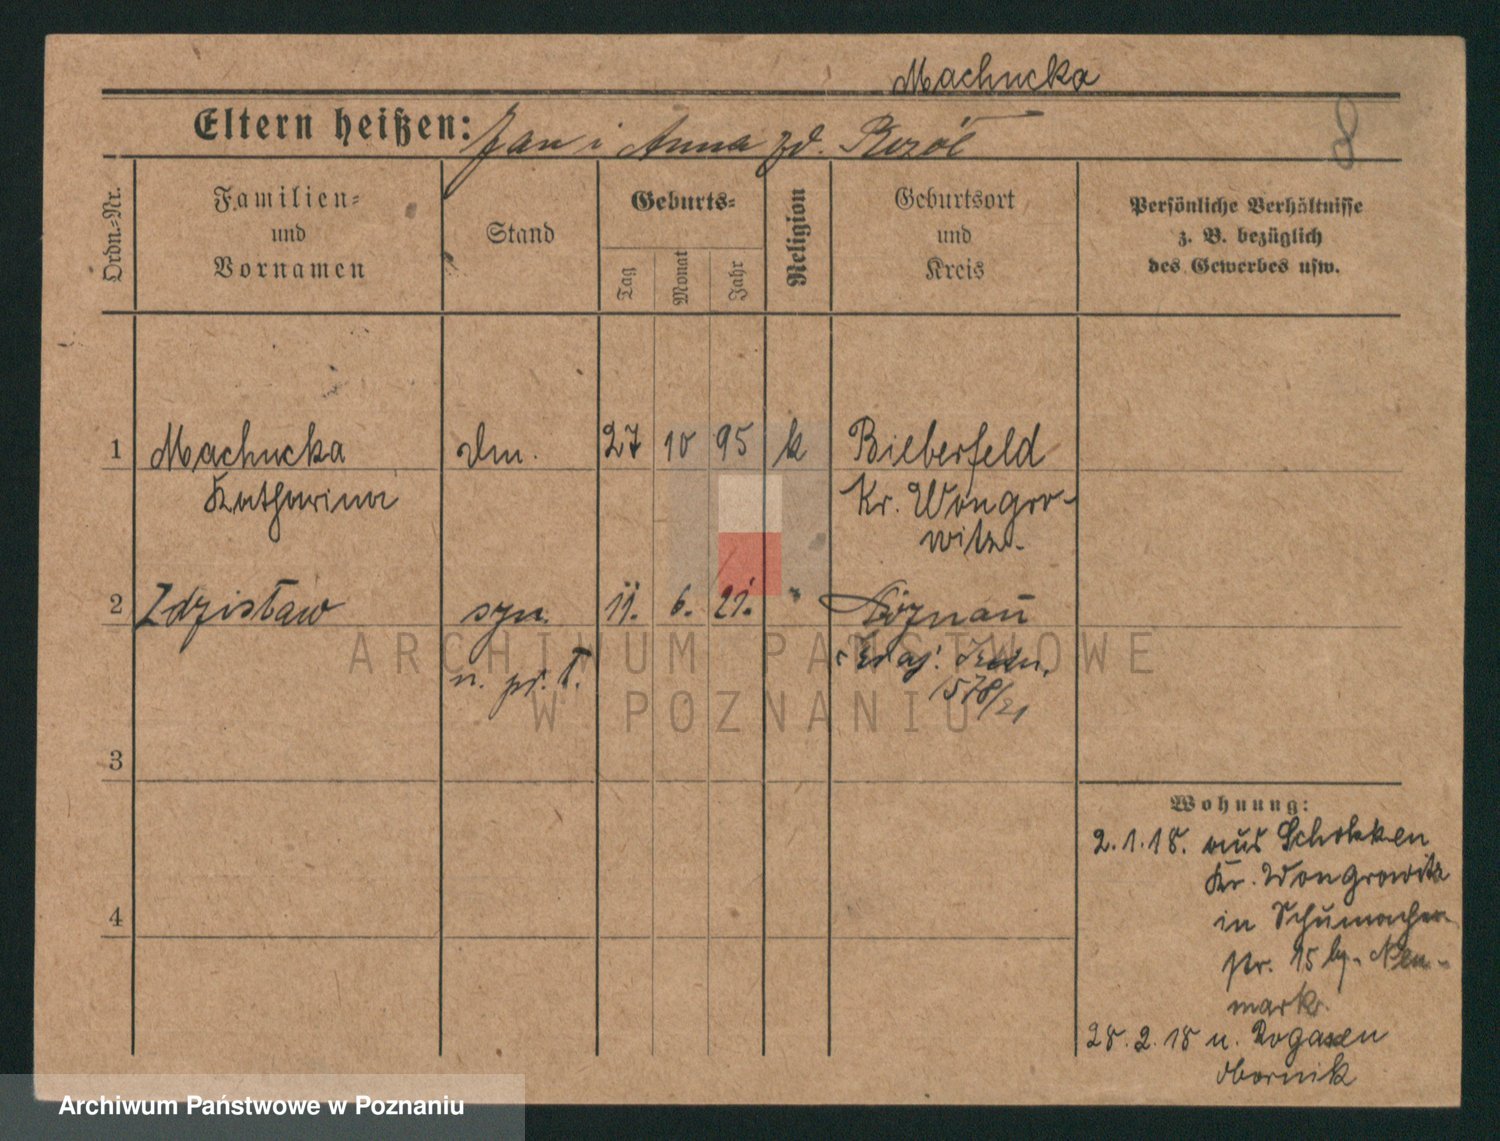 Machucka
Eltern heißen: Jan i Anna zd.
8
Ordn.-Nr.
Familien-
und
Vornamen
Stand
Geburts-
Tag
Monat
Jahr
Religion
Geburtsort
und
Kreis
Persönliche Verhältnisse
z. B. bezüglich
des Gewerbes usw.
1 Machucka dm. 27 10 95 k Bieberfeld
Katharina Kr. Wongro-
witz.
2 Zdzisław syn. 11. 6. 21. " Poznań
n. pr. T.
1578/21
ARCHIWUM PAŃSTWOWE
W POZNANIU
3
4
Wohnung:
2.1.18. aus Schokken
Kr. Wongrowitz
in Schumacher-
str. 15 b. Neu-
mark.
28.2.18 n. Rogasen
Obornik
Archiwum Państwowe w Poznaniu